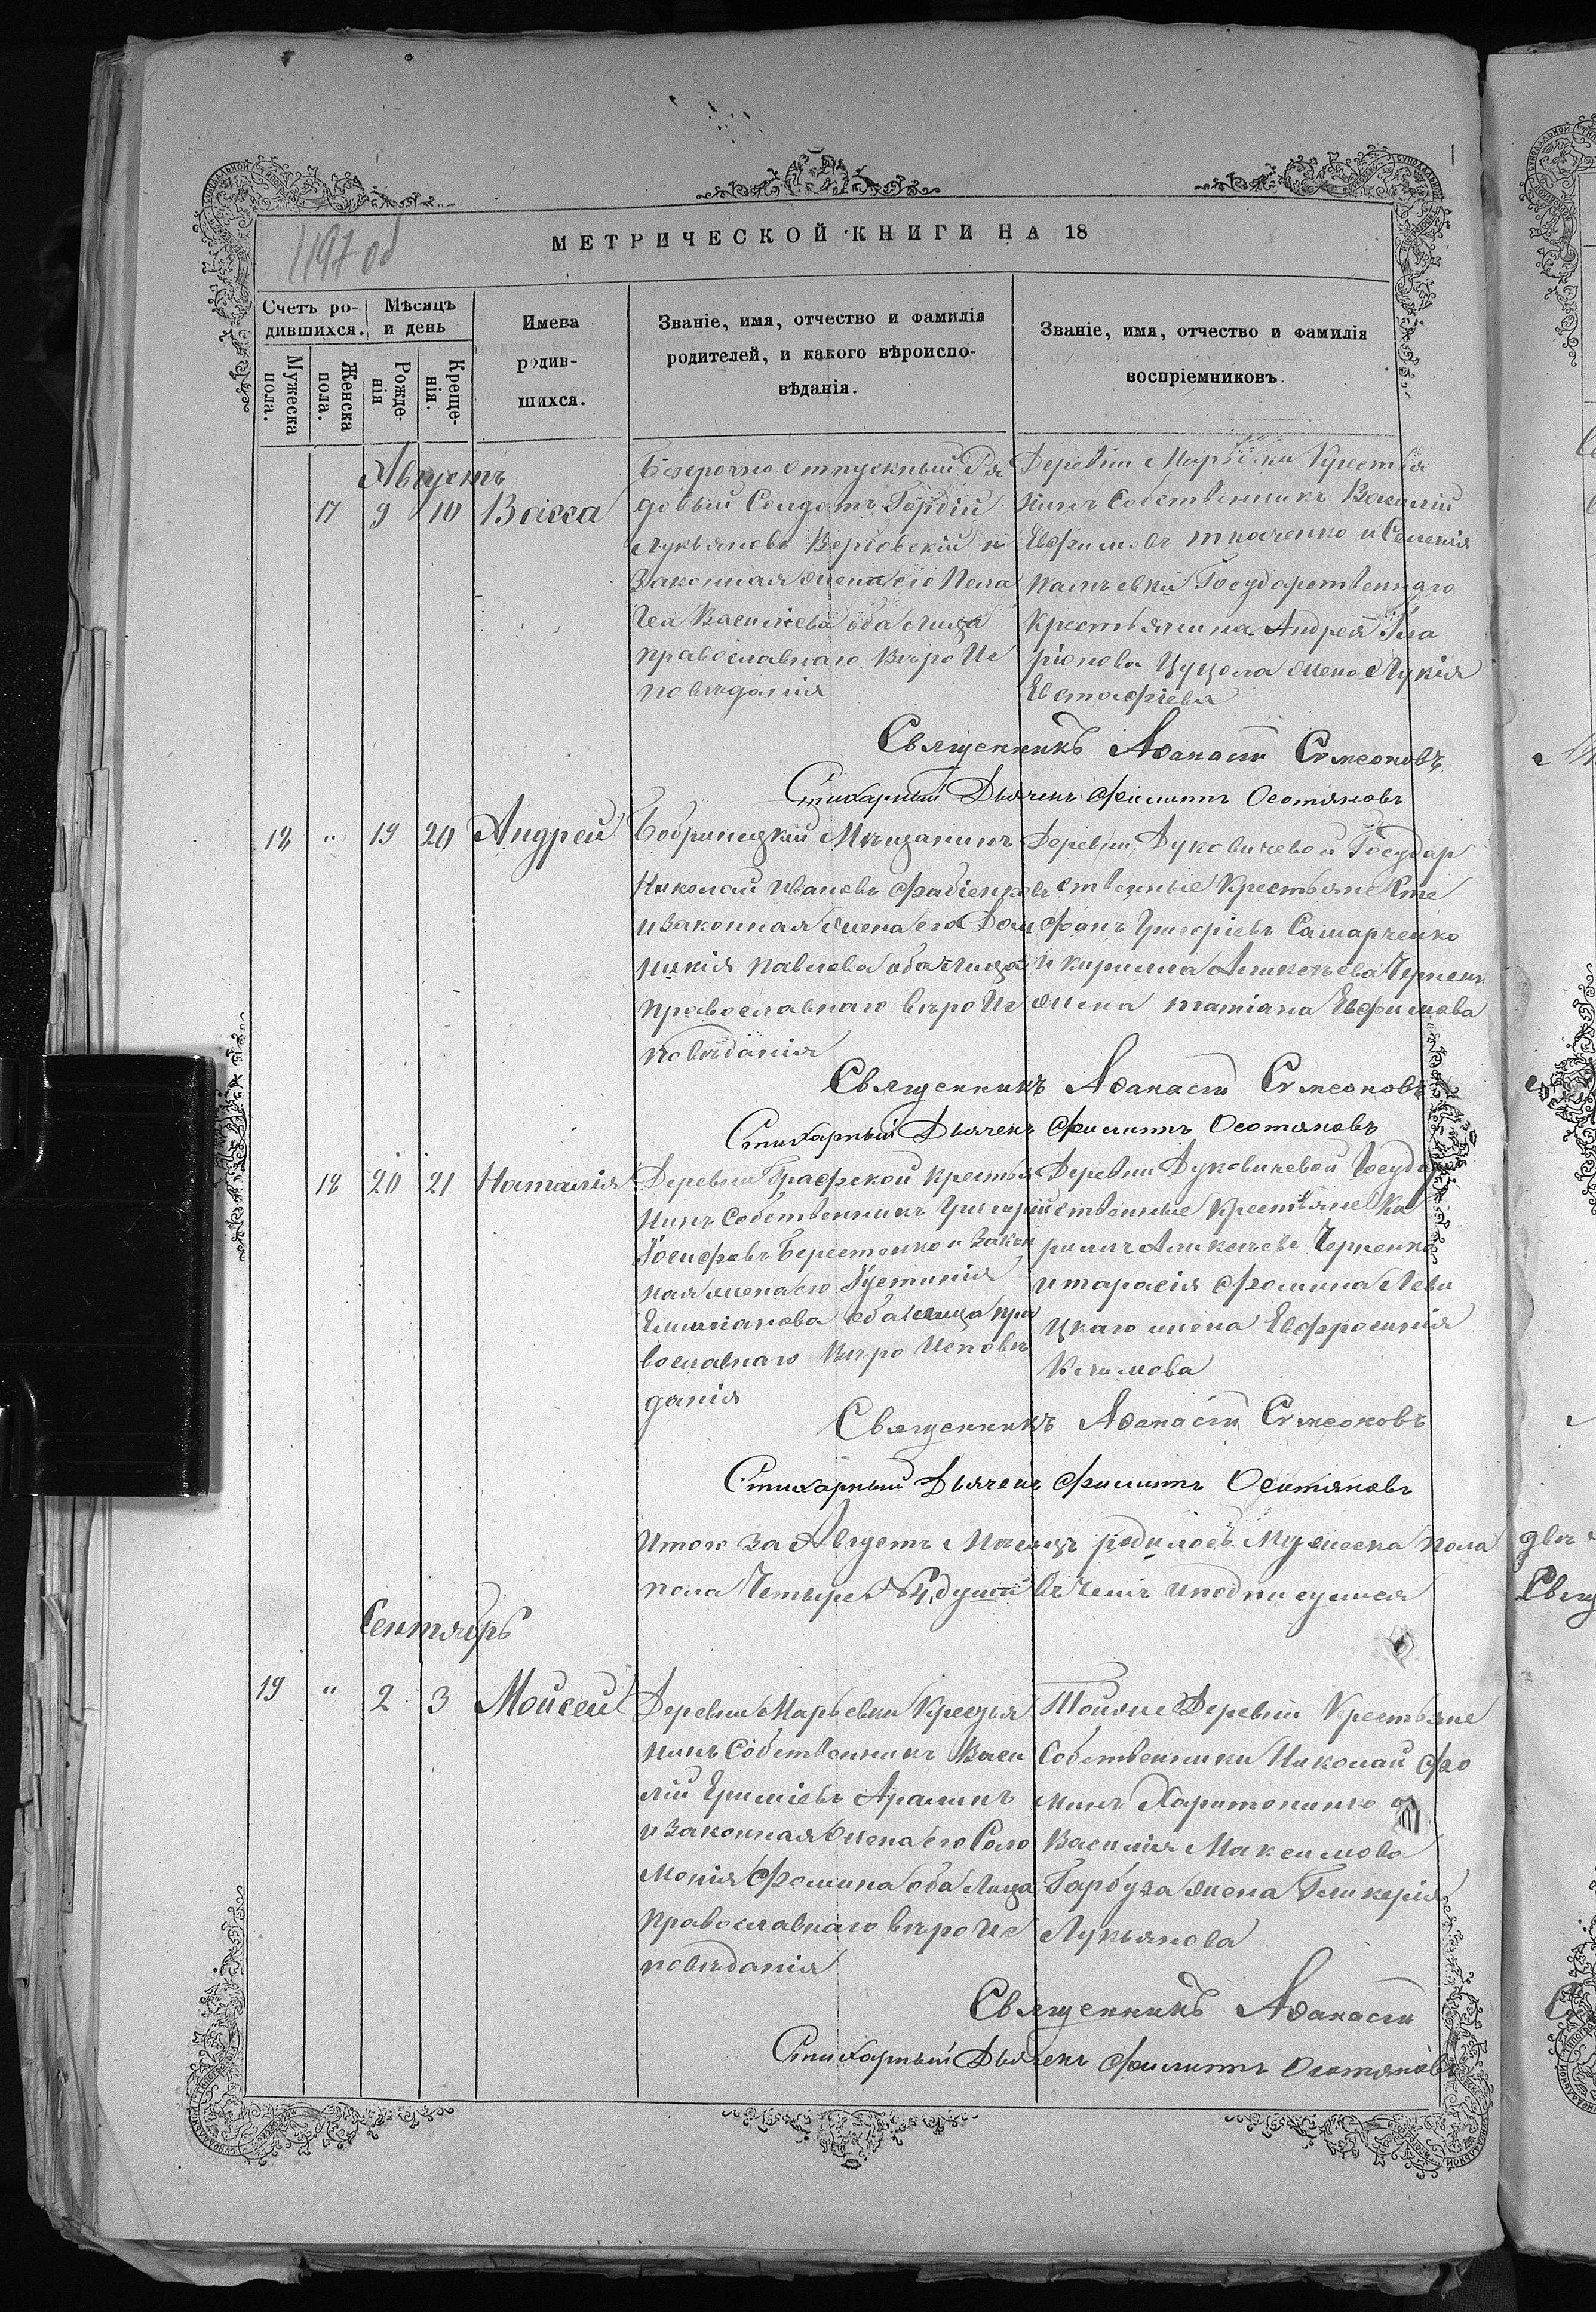 1197 об
МЕТРИЧЕСКОЙ КНИГИ НА 18
Счетъ ро-
дившихся.
Мѣсяцъ
и день
Мужеска
пола.
Женска
пола.
Рожде-
нія
Креще-
нія.
Имена
родив-
шихся.
Званіе, имя, отчество и фамилія
родителей, и какого вѣроиспо-
вѣданія.
Званіе, имя, отчество и фамилія
воспріемниковъ.
Августъ
17 9 10 Васса
Безсрочно отпускный Ря
довый Солдатъ Гордій
Лукьяновъ Вербовскій и
Законная жена его Пела
гея Василіева оба лица
православнаго Вѣро Ис
повѣданія
Деревни Марьевки Крестья
нинъ Собственникъ Василій
Евфимовъ ткаченко и Селенія
Государственнаго
Крестьянина Андрея Ила
ріонова Цуцола жена Лукія
Евстафіева
Священникъ Аѳанасій Симеоновъ
Стихарный Дьячекъ Филиппъ
18 " 19 20 Андрей
Бобринецкій Мѣщанинъ
Николай Ивановъ
и законная жена его Дом
никія Павлова оба лица
православнаго вѣро Ис
повѣданія
Деревни Луковичевой Государ
ственные Крестьяне Сте
фанъ Григоріевъ Самарченко
и Кирилла Черненк
жена татіана Евфимова
Священникъ Аѳанасій Симеоновъ
Стихарный Дьячекъ Филиппъ
18 20 21 Наталія
Деревни Графской Крестья
нинъ Собственникъ Григорій
Іосифовъ Берестенко и Закон
ная жена его Іустинія
Емиліанова оба лица пра
вославнаго Вѣро Исповѣ
данія
Деревни Луковичевой Государ
ственные Крестьяне Ки
рилъ Черненко
и тарасія Фомина Леви
цкаго жена Евфросинія
Климова
Священникъ Аѳанасій Симеоновъ
Стихарный Дьячекъ Филиппъ
Итого за Августъ Мѣсяцъ родилось Мужеска пола
пола Четыре 4, душъ въ чемъ и подписуемся
Сентябрь
19 " 2 3 Моисей
Деревни Марьевки Крестья
нинъ Собственникъ Васи
лій Араминъ
и Законная жена его Соло
монія Фомина оба Лица
православнаго вѣро Ис
повѣданія
Тойже Деревни Крестьяне
Собственники Николай Фо
минъ
Василія Максимова
Гарбуза жена Гликерія
Лукьянова
Священникъ Аѳанасій
Стихарный Дьячекъ Филиппъ